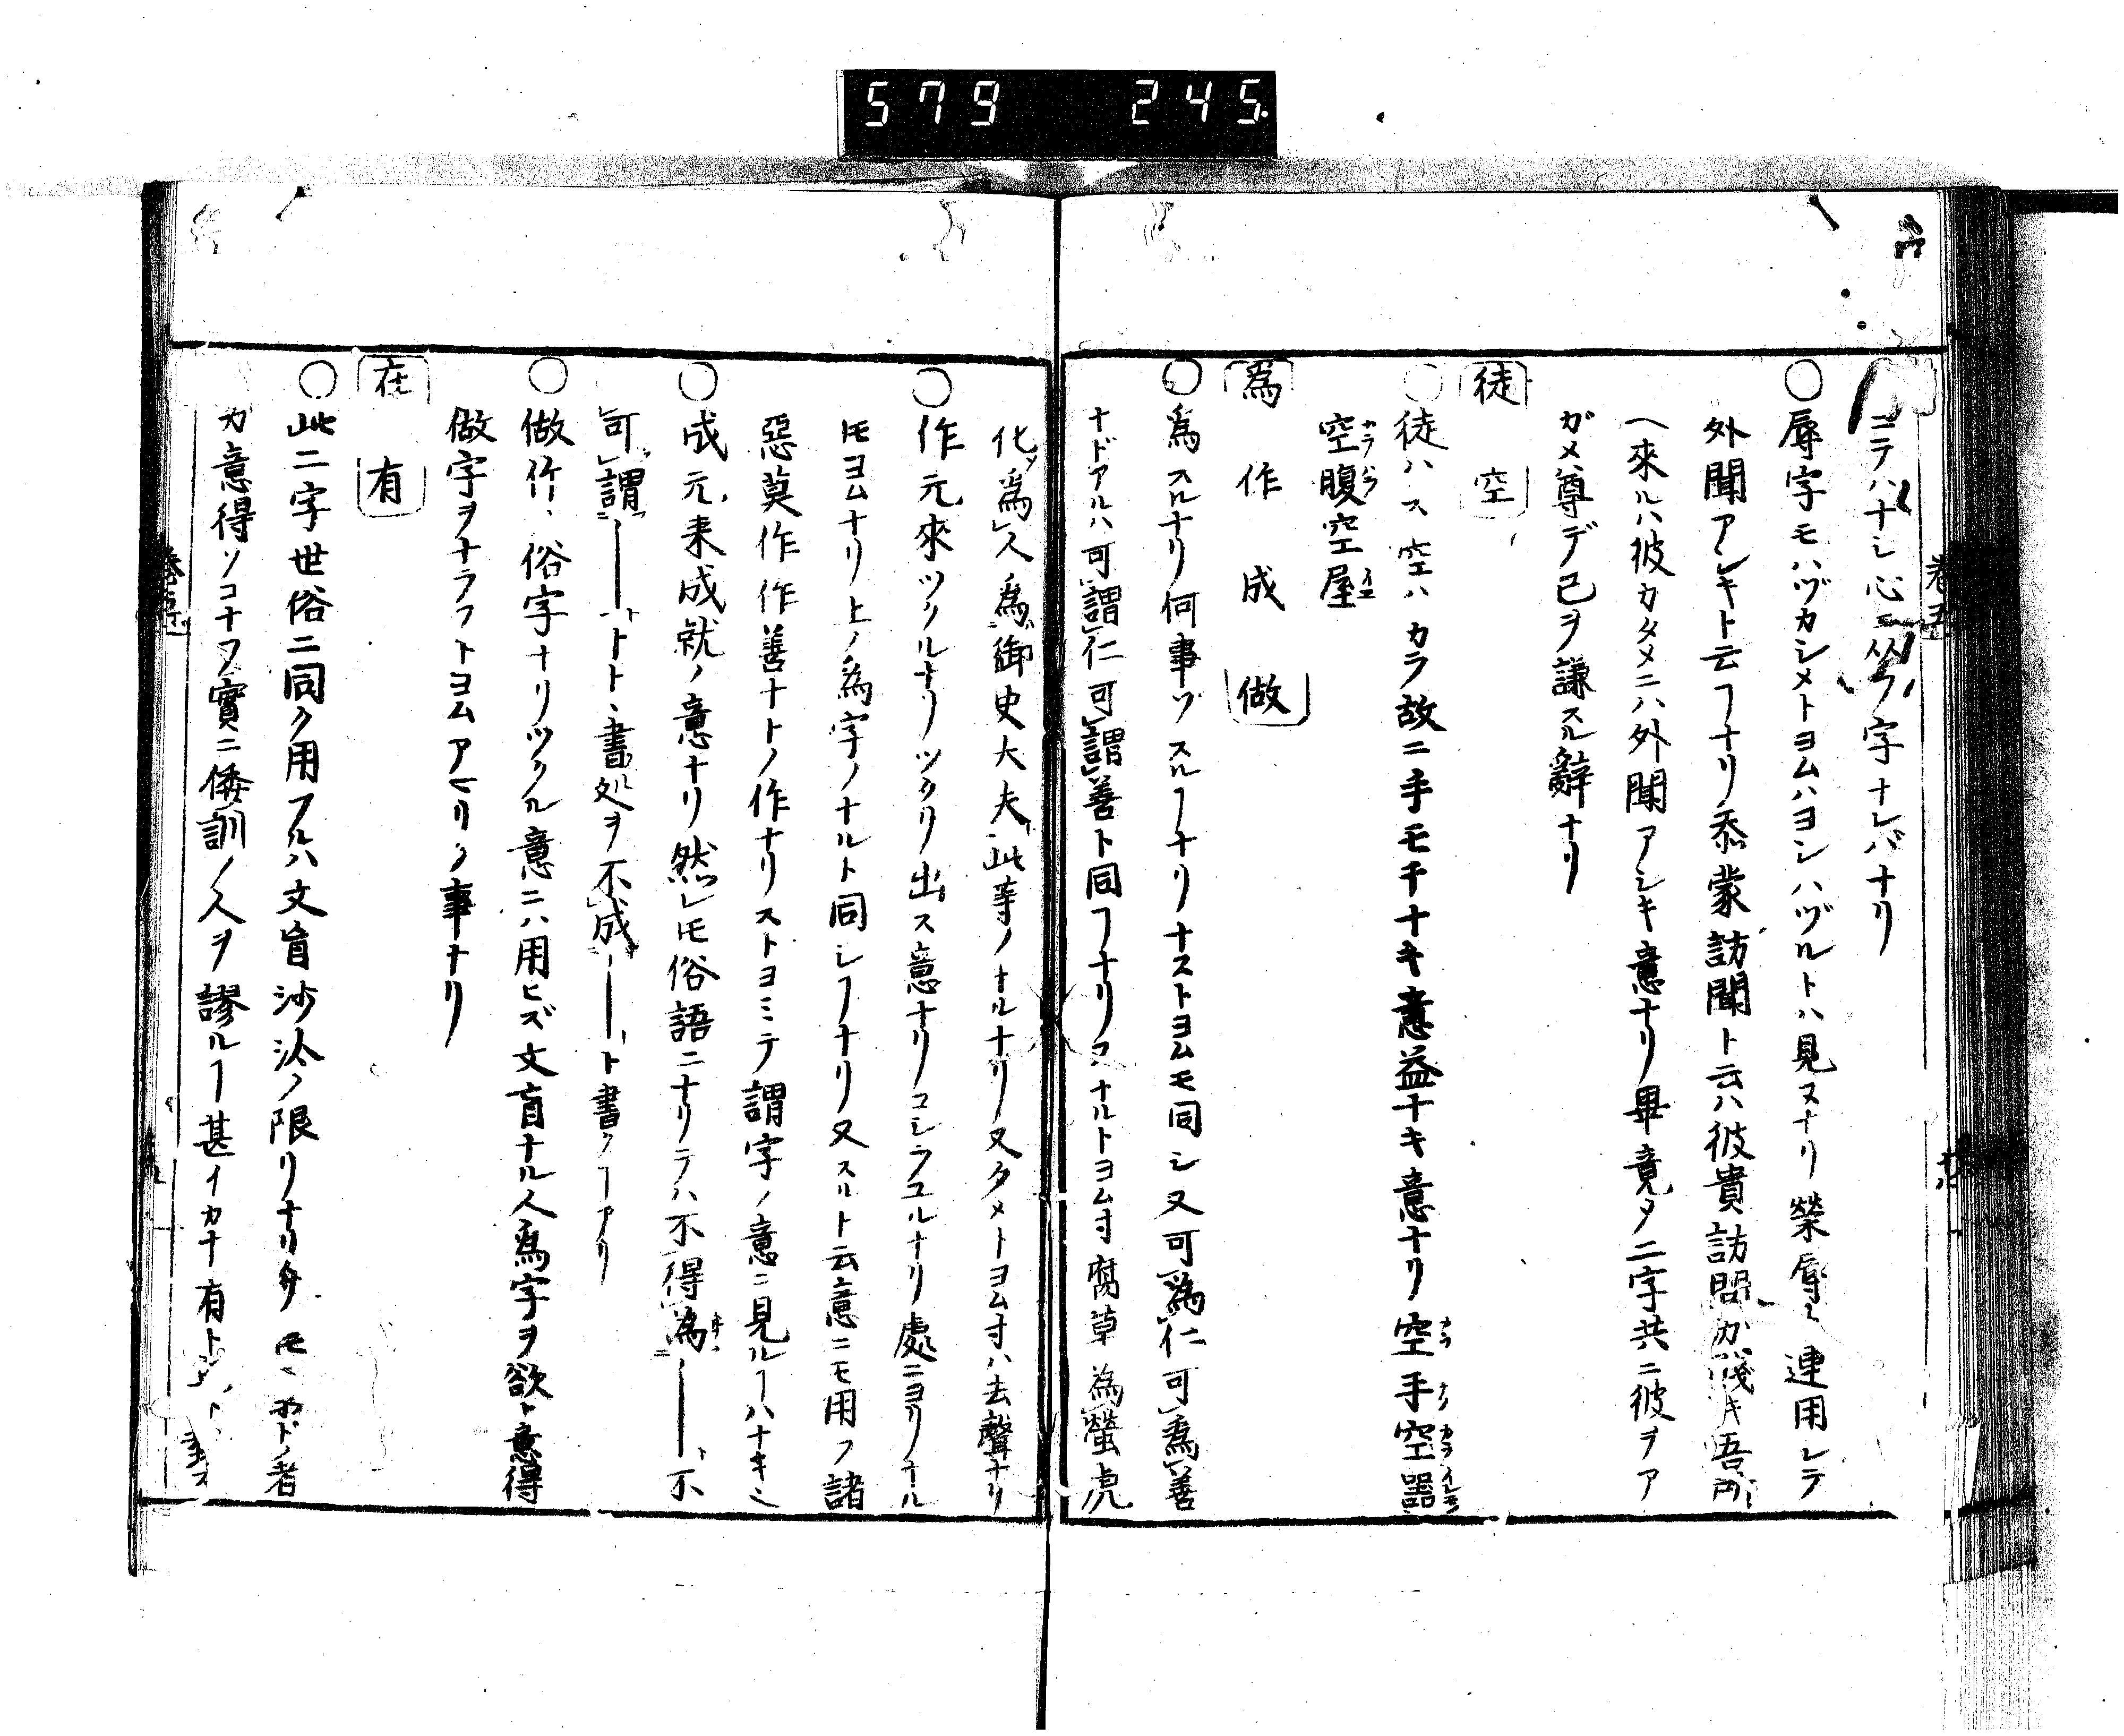 579 245.
ニテハナシ心ニ从フ字ナレバナリ
○辱字モハヅカシメトヨムハヨシハヅルトハ見ヌナリ榮辱ト連用シテ
外聞アシキト云フナリ忝蒙訪聞ト云ハ彼貴訪問ガ賤キ吾所
ヘ來ルハ彼カタメニハ外聞アシキ意ナリ畢竟タ二字共ニ彼ヲア
ガメ尊デ己ヲ謙スル辭ナリ
徒 空
○徒ハス空ハカラ故ニ手モチナキ意益ナキ意ナリ空手空器
空腹空屋
為 作 成 做
○為スルナリ何事ヅスルヿナリナストヨムモ同シ又可為仁可為善
ナドアルハ可謂仁可謂善ト同ヿナリ又ナルトヨム寸腐草為螢虎
化為人為御史大夫此等ノナルナリ又タメトヨム寸ハ去聲ナリ
○作元來ツクルナリツクリ出ス意ナリコシラユルナリ處ニヨリナール
𪜈ヨムナリ上ノ為字ノナルト同シヿナリ又スルト云意ニモ用フ諸
惡莫作作善ナトノ作ナリストヨミテ謂字ノ意ニ見ルヿハナキミ
○成元来成就ノ意ナリ然レ𪜈俗語ニナリテハ不得為――不
可謂――トト書処ヲ不成――ト書クヿアリ
○做作俗字ナリツクル意ニハ用ヒズ文盲ナル人為字ヲ欲ト意得
做字ヲナラフトヨムアヤリノ事ナリ
在 有
○此二字世俗ニ同ク用フルハ文盲沙汰ノ限リナリ
カ意得ソコナフ實ニ倭訓ノ人ヲ謬ルヿ甚イカナ有ト
卷五